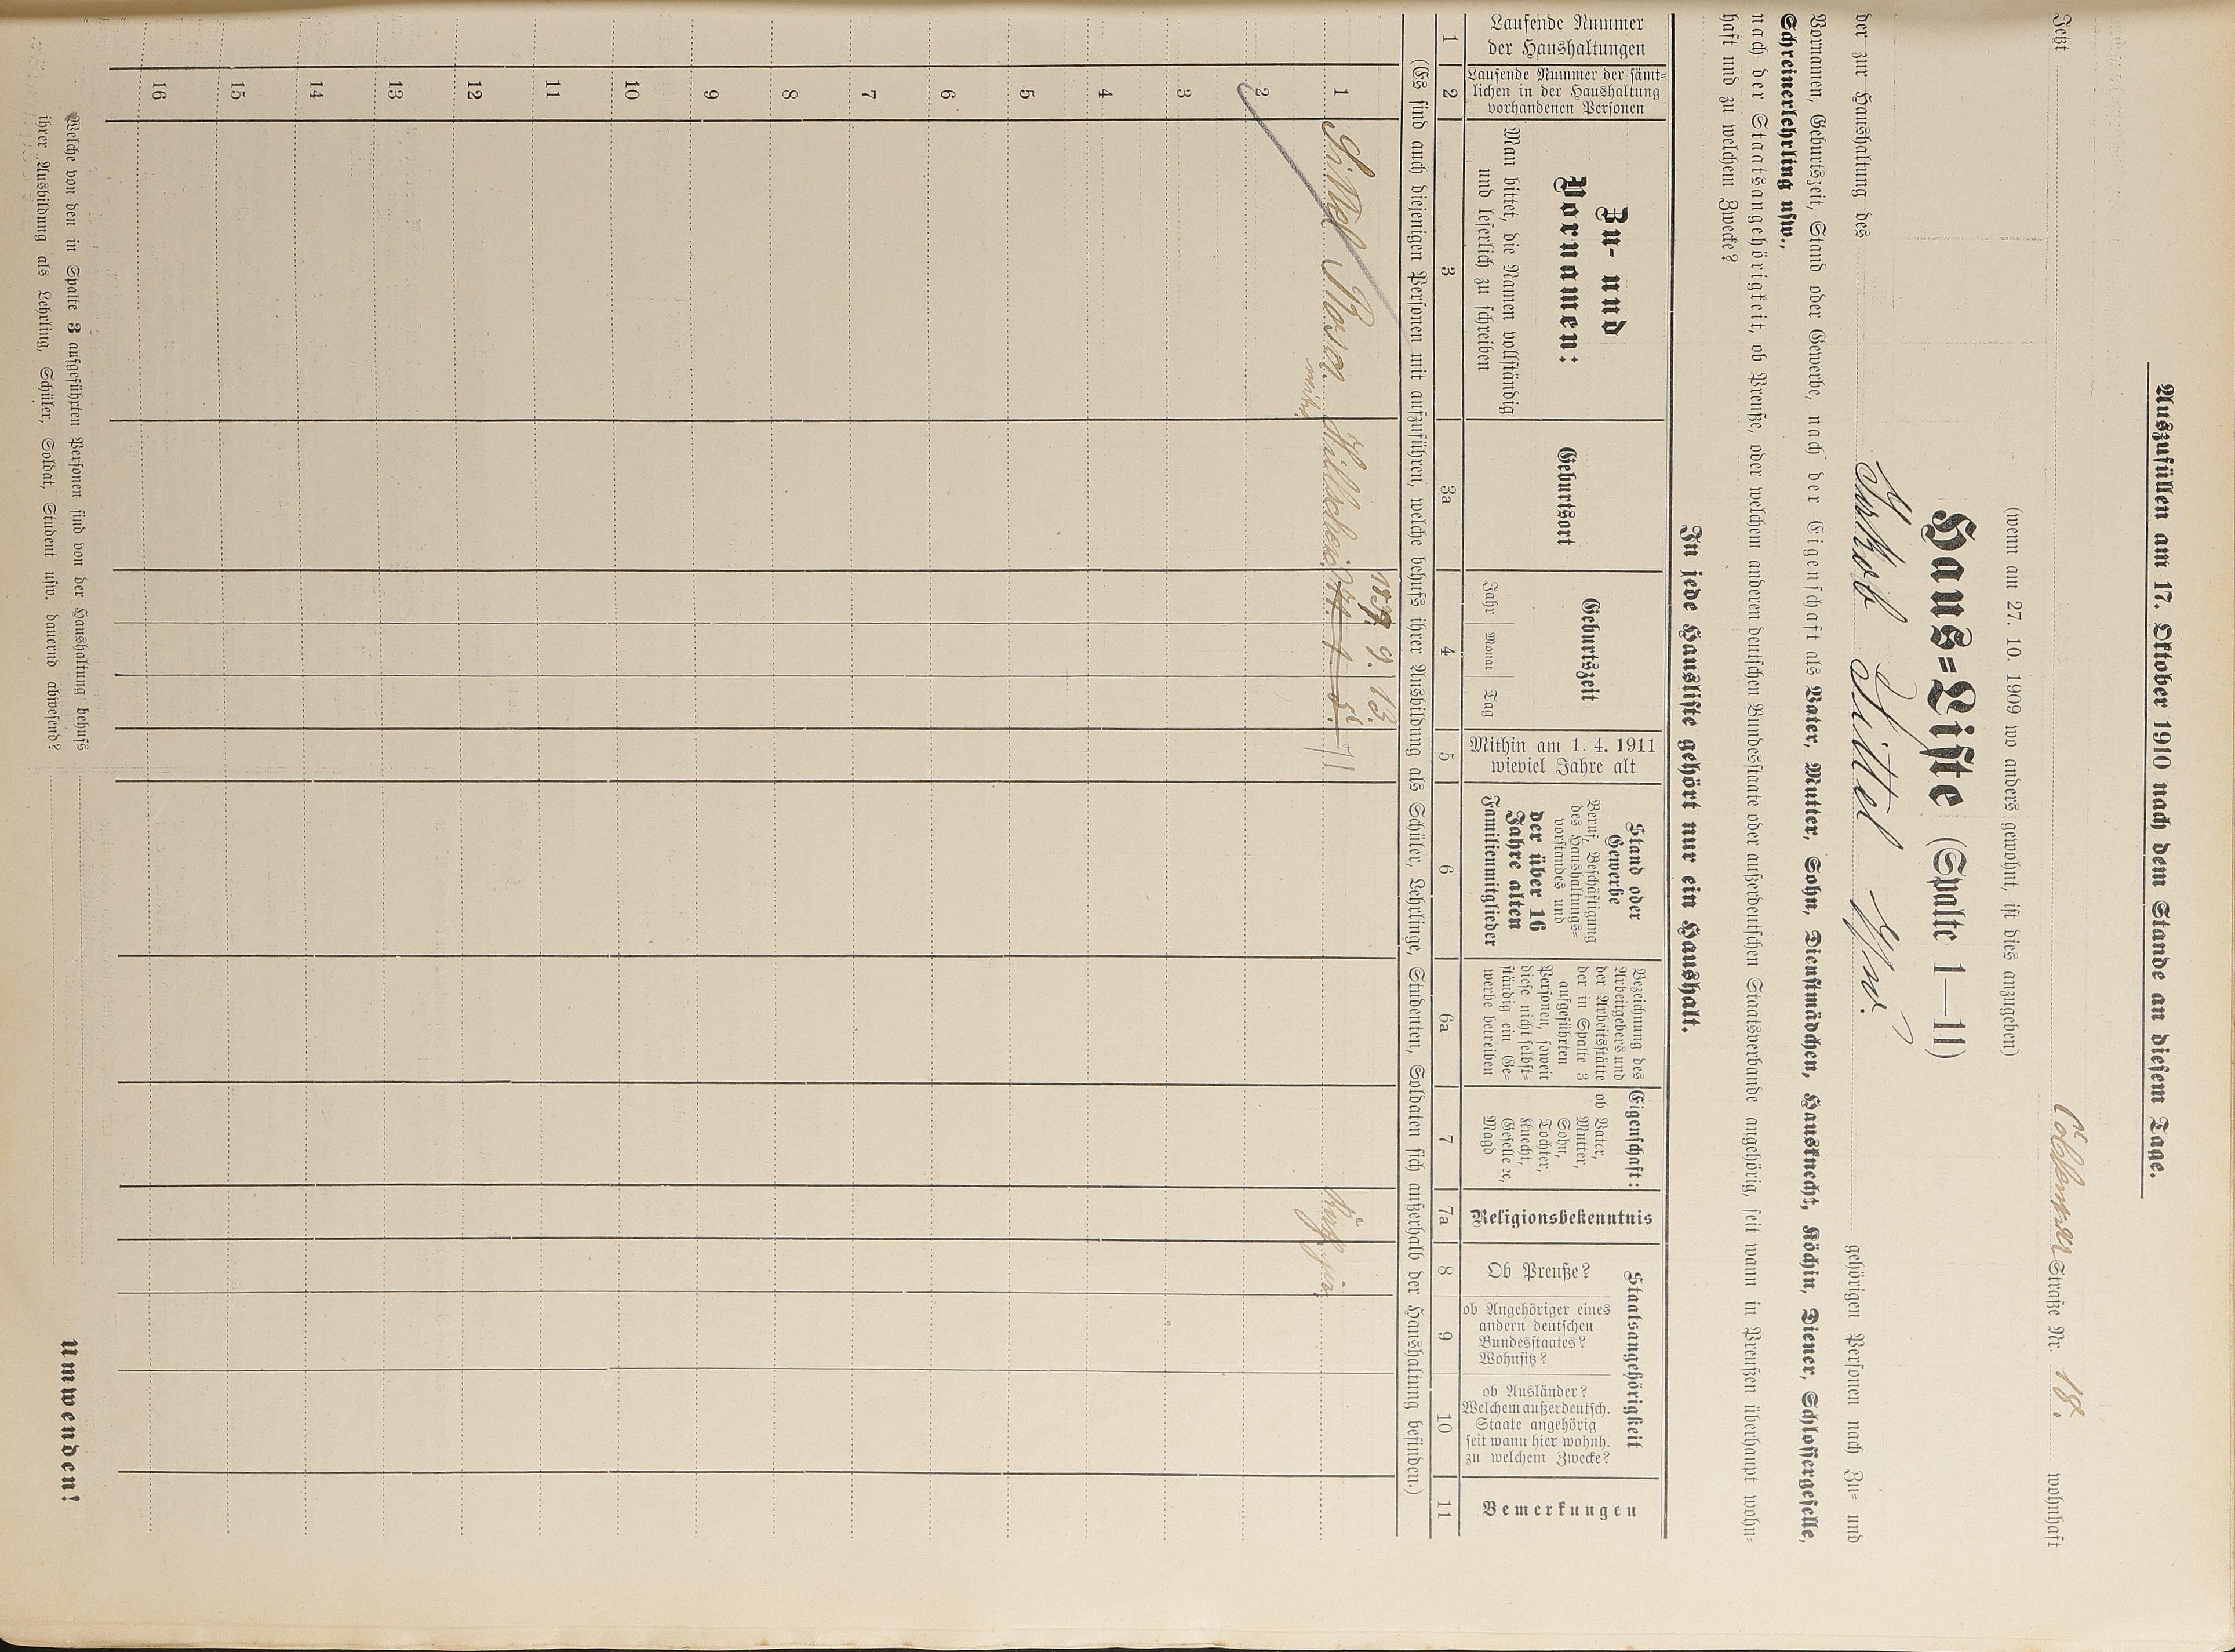 Auszufüllen am 17. Oktober 1910 nach dem Stande an diesem Tage.
Jetzt Straße Nr. 18. wohnhaft
(wenn am 27. 10. 1909 wo anders gewohnt, ist dies anzugeben)
Haus=Liste (Spalte 1—11)
der zur Haushaltung des Jakob Sittel Ww. gehörigen Personen nach Zu= und
Vornamen, Geburtszeit, Stand oder Gewerbe, nach der Eigenschaft als Vater, Mutter, Sohn, Dienstmädchen, Hausknecht, Köchin, Diener, Schlossergeselle,
Schreinerlehrling usw.,
nach der Staatsangehörigkeit, ob Preuße, oder welchem anderen deutschen Bundesstaate oder außerdeutschen Staatsverbande angehörig, seit wann in Preußen überhaupt wohn=
haft und zu welchem Zwecke?
In jede Hausliste gehört nur ein Haushalt.
Laufende Nummer
der Haushaltungen
Laufende Nummer der sämt=
lichen in der Haushaltung
vorhandenen Personen
Zu- und
Vornamen:
Man bittet, die Namen vollständig
und leserlich zu schreiben
Geburtsort
Geburtszeit
Jahr Monat Tag
Mithin am 1. 4. 1911
wieviel Jahre alt
Stand oder
Gewerbe
Beruf, Beschäftigung
des Haushaltungs=
vorstandes und
der über 16
Jahre alten
Familienmitglieder
Bezeichnung des
Arbeitgebers und
der Arbeitsstätte
der in Spalte 3
aufgeführten
Personen, soweit
diese nicht selbst=
ständig ein Ge=
werbe betreiben
Eigenschaft:
ob Vater,
Mutter,
Sohn,
Tochter,
Knecht,
Geselle ꝛc,
Magd
Religionsbekenntnis
Staatsangehörigkeit
Ob Preuße?
ob Angehöriger eines
andern deutschen
Bundesstaates?
Wohnsitz?
ob Ausländer?
Welchem außerdeutsch.
Staate angehörig
seit wann hier wohnh.
zu welchem Zwecke?
Bemerkungen
1 2 3 3a 4 5 6 6a 7 7a 8 9 10 11
(Es sind auch diejenigen Personen mit aufzuführen, welche behufs ihrer Ausbildung als Schüler, Lehrlinge, Studenten, Soldaten sich außerhalb der Haushaltung befinden.)
9. 13.
1 Sittel Rosa
2
3
4
5
6
7
8
9
10
11
12
13
14
15
16
Welche von den in Spalte 3 aufgeführten Personen sind von der Haushaltung behufs
ihrer Ausbildung als Lehrling, Schüler, Soldat, Student usw. dauernd abwesend?
Umwenden!